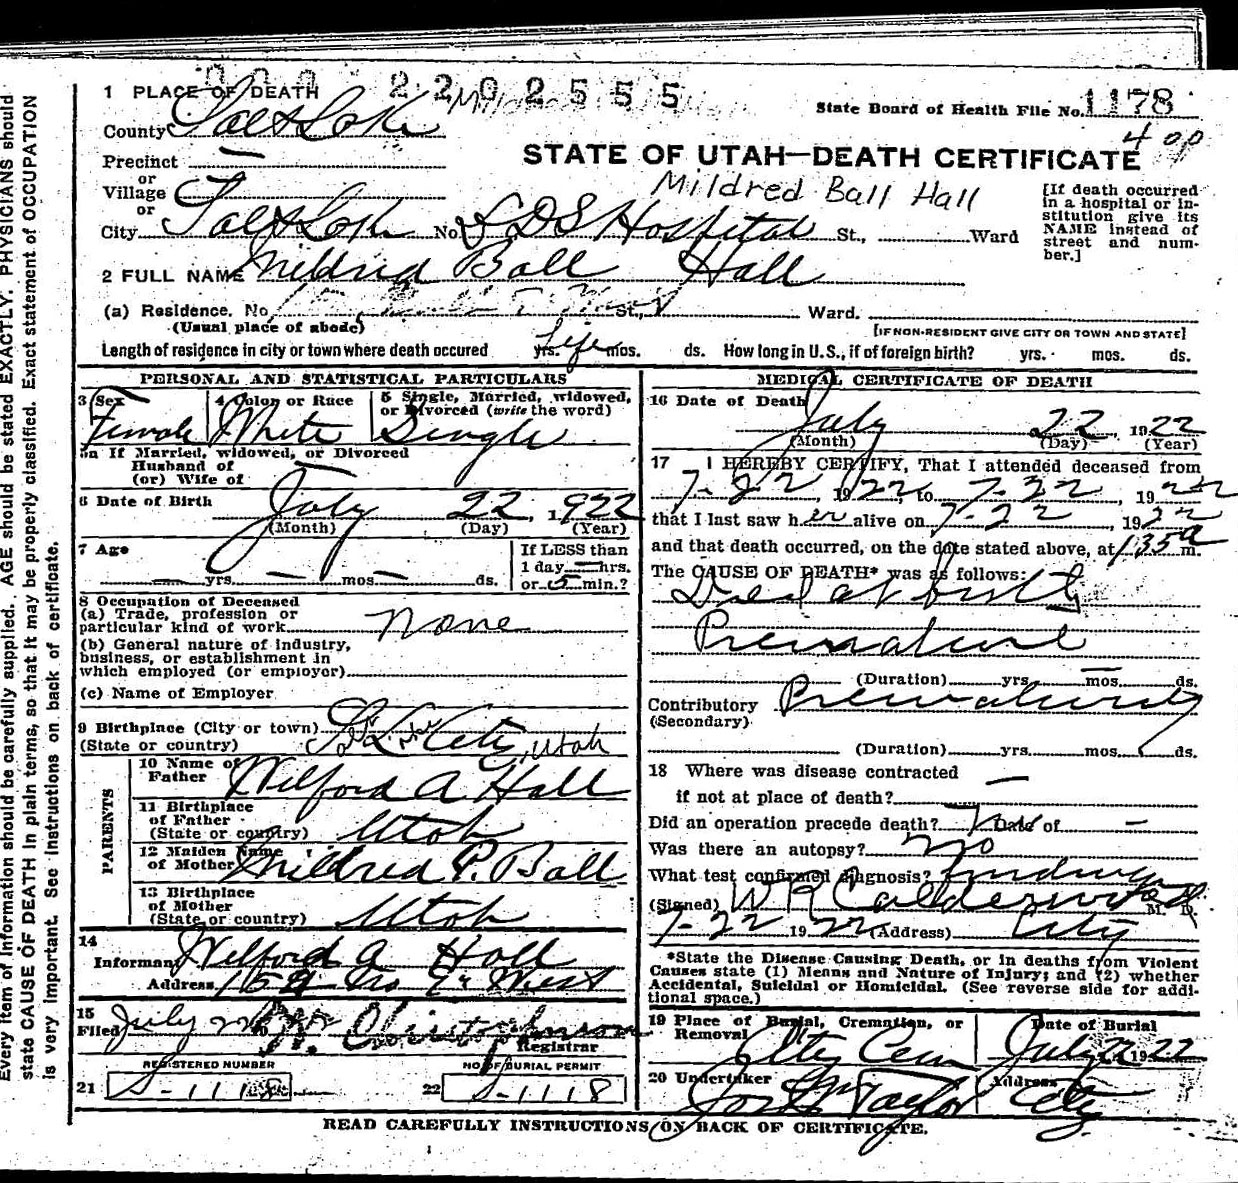 Every item of information should be carefully supplied. AGE should be stated EXACTLY. PHYSICIANS should
state CAUSE OF DEATH in plain terms, so that it may be properly classified. Exact statement of OCCUPATION
is very important. See instructions on back of certificate.
2202555
1 PLACE OF DEATH
State Board of Health File No. 1178
County Salt Lake
Precinct —
or
Village
or
City Salt Lake No. LDS Hospital St., Ward
STATE OF UTAH—DEATH CERTIFICATE
Mildred Ball Hall
[If death occurred
in a hospital or in-
stitution give its
NAME instead of
street and num-
ber.]
2 FULL NAME Mildred Ball Hall
(a) Residence. No. St., Ward.
(Usual place of abode)
[IF NON-RESIDENT GIVE CITY OR TOWN AND STATE]
Length of residence in city or town where death occured yrs. Life mos. ds. How long in U.S., if of foreign birth? yrs. mos. ds.
PERSONAL AND STATISTICAL PARTICULARS
3 Sex Female
4 Color or Race White
5 Single, Married, widowed,
or Divorced (write the word)
Single
5a If Married, widowed, or Divorced
Husband of
(or) Wife of —
6 Date of Birth July 22, 1922
(Month) (Day) (Year)
7 Age — yrs. — mos. — ds.
If LESS than
1 day — hrs.
or 5 min.?
8 Occupation of Deceased
(a) Trade, profession or
particular kind of work None
(b) General nature of industry,
business, or establishment in
which employed (or employer)
(c) Name of Employer
9 Birthplace (City or town) S. L. City, Utah
(State or country)
PARENTS
10 Name of
Father Wilford A Hall
11 Birthplace
of Father
(State or country) Utah
12 Maiden Name
of Mother Mildred P. Ball
13 Birthplace
of Mother
(State or country) Utah
14
Informant Wilford A Hall
Address 159 No 6 West
15
Filed July 22 Christopherson
Registrar
REGISTERED NUMBER
NO. OF BURIAL PERMIT
21 S-1118
22 S-1118
MEDICAL CERTIFICATE OF DEATH
16 Date of Death July 22, 1922
(Month) (Day) (Year)
17 I HEREBY CERTIFY, That I attended deceased from
7-22, 1922 to 7-22, 1922
that I last saw her alive on 7-22, 1922
and that death occurred, on the date stated above, at 1:35 a m.
The CAUSE OF DEATH* was as follows:
Died at birth
Premature
(Duration) yrs. — mos. ds.
Contributory Prematurity
(Secondary)
(Duration) yrs. mos. ds.
18 Where was disease contracted
if not at place of death? —
Did an operation precede death? No Date of —
Was there an autopsy? No
What test confirmed diagnosis?
(Signed) W R Calderwood M. D.
7-22 1922 (Address) City
*State the Disease Causing Death, or in deaths from Violent
Causes state (1) Means and Nature of Injury; and (2) whether
Accidental, Suicidal or Homicidal. (See reverse side for addi-
tional space.)
19 Place of Burial, Cremation, or
Removal City Cem
Date of Burial July 22 1922
20 Undertaker Jos Wm Taylor
Address City
READ CAREFULLY INSTRUCTIONS ON BACK OF CERTIFICATE.